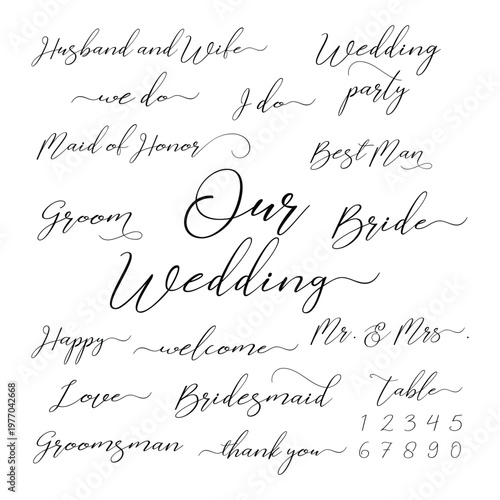 Husband and Wife
Wedding
party
we do
I do
Maid of Honor
Best Man
Groom
Our
Wedding
Bride
Happy
welcome
Mr. & Mrs.
Love
Bridesmaid
Table
1 2 3 4 5
6 7 8 9 0
Groomsman
thank you
Adobe Stock | #1977042668